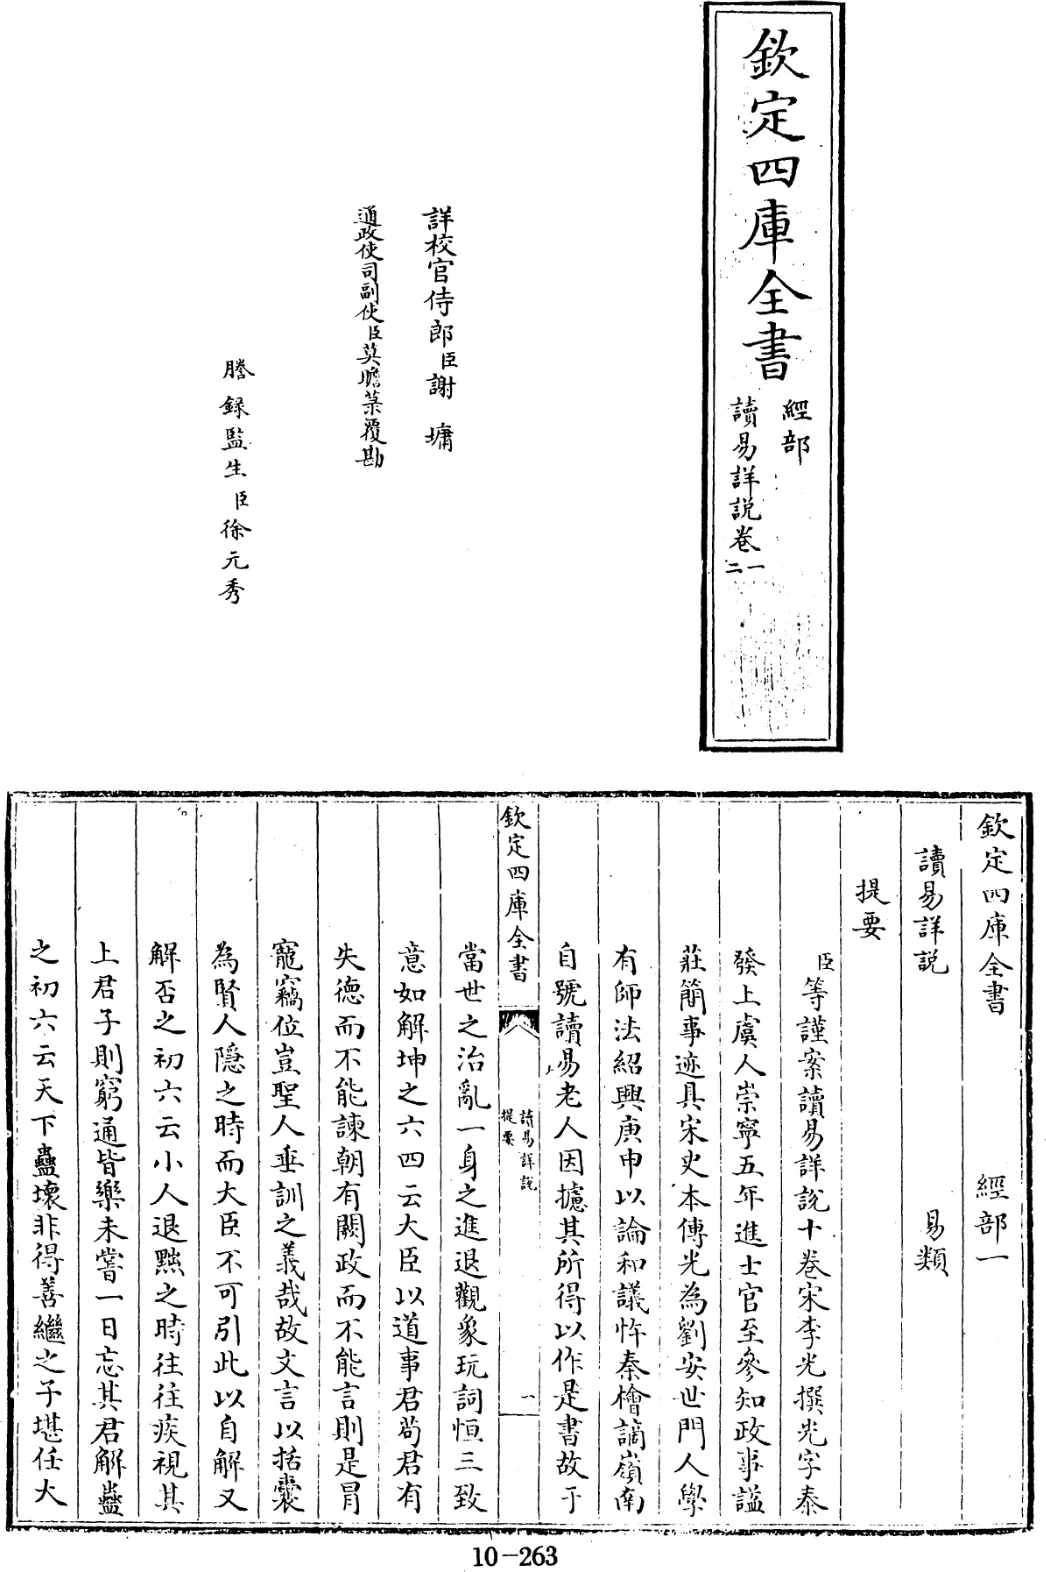 欽定四庫全書
經部
讀易詳説卷一
二
詳校官侍郎臣謝墉
通政使司副使臣莫瞻菉覆勘
謄録監生臣徐元秀
欽定四庫全書 經部一
讀易詳説 易類
提要
臣等謹案讀易詳說十卷宋李光撰光字泰
發上虞人崇寧五年進士官至參知政事諡
莊簡事迹具宋史本傳光為劉安世門人學
有師法紹興庚申以論和議忤秦檜謫嶺南
自號讀易老人因攄其所得以作是書故于
欽定四庫全書
讀易詳說
提要
一
當世之治亂一身之進退觀象玩詞恒三致
意如解坤之六四云大臣以道事君茍君有
失德而不能諫朝有闕政而不能言則是冒
寵竊位豈聖人垂訓之義哉故文言以括囊
為賢人隱之時而大臣不可引此以自解又
解否之初六云小人退黜之時往往疾視其
上君子則窮通皆樂未嘗一日忘其君解蠱
之初六云天下蠱壞非得善繼之子堪任大
10-263